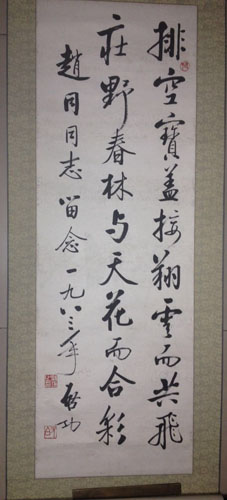 排空寶盖接翔雲而共飛
庄野春林与天花而合彩
趙同同志留念一九八三年 啟功